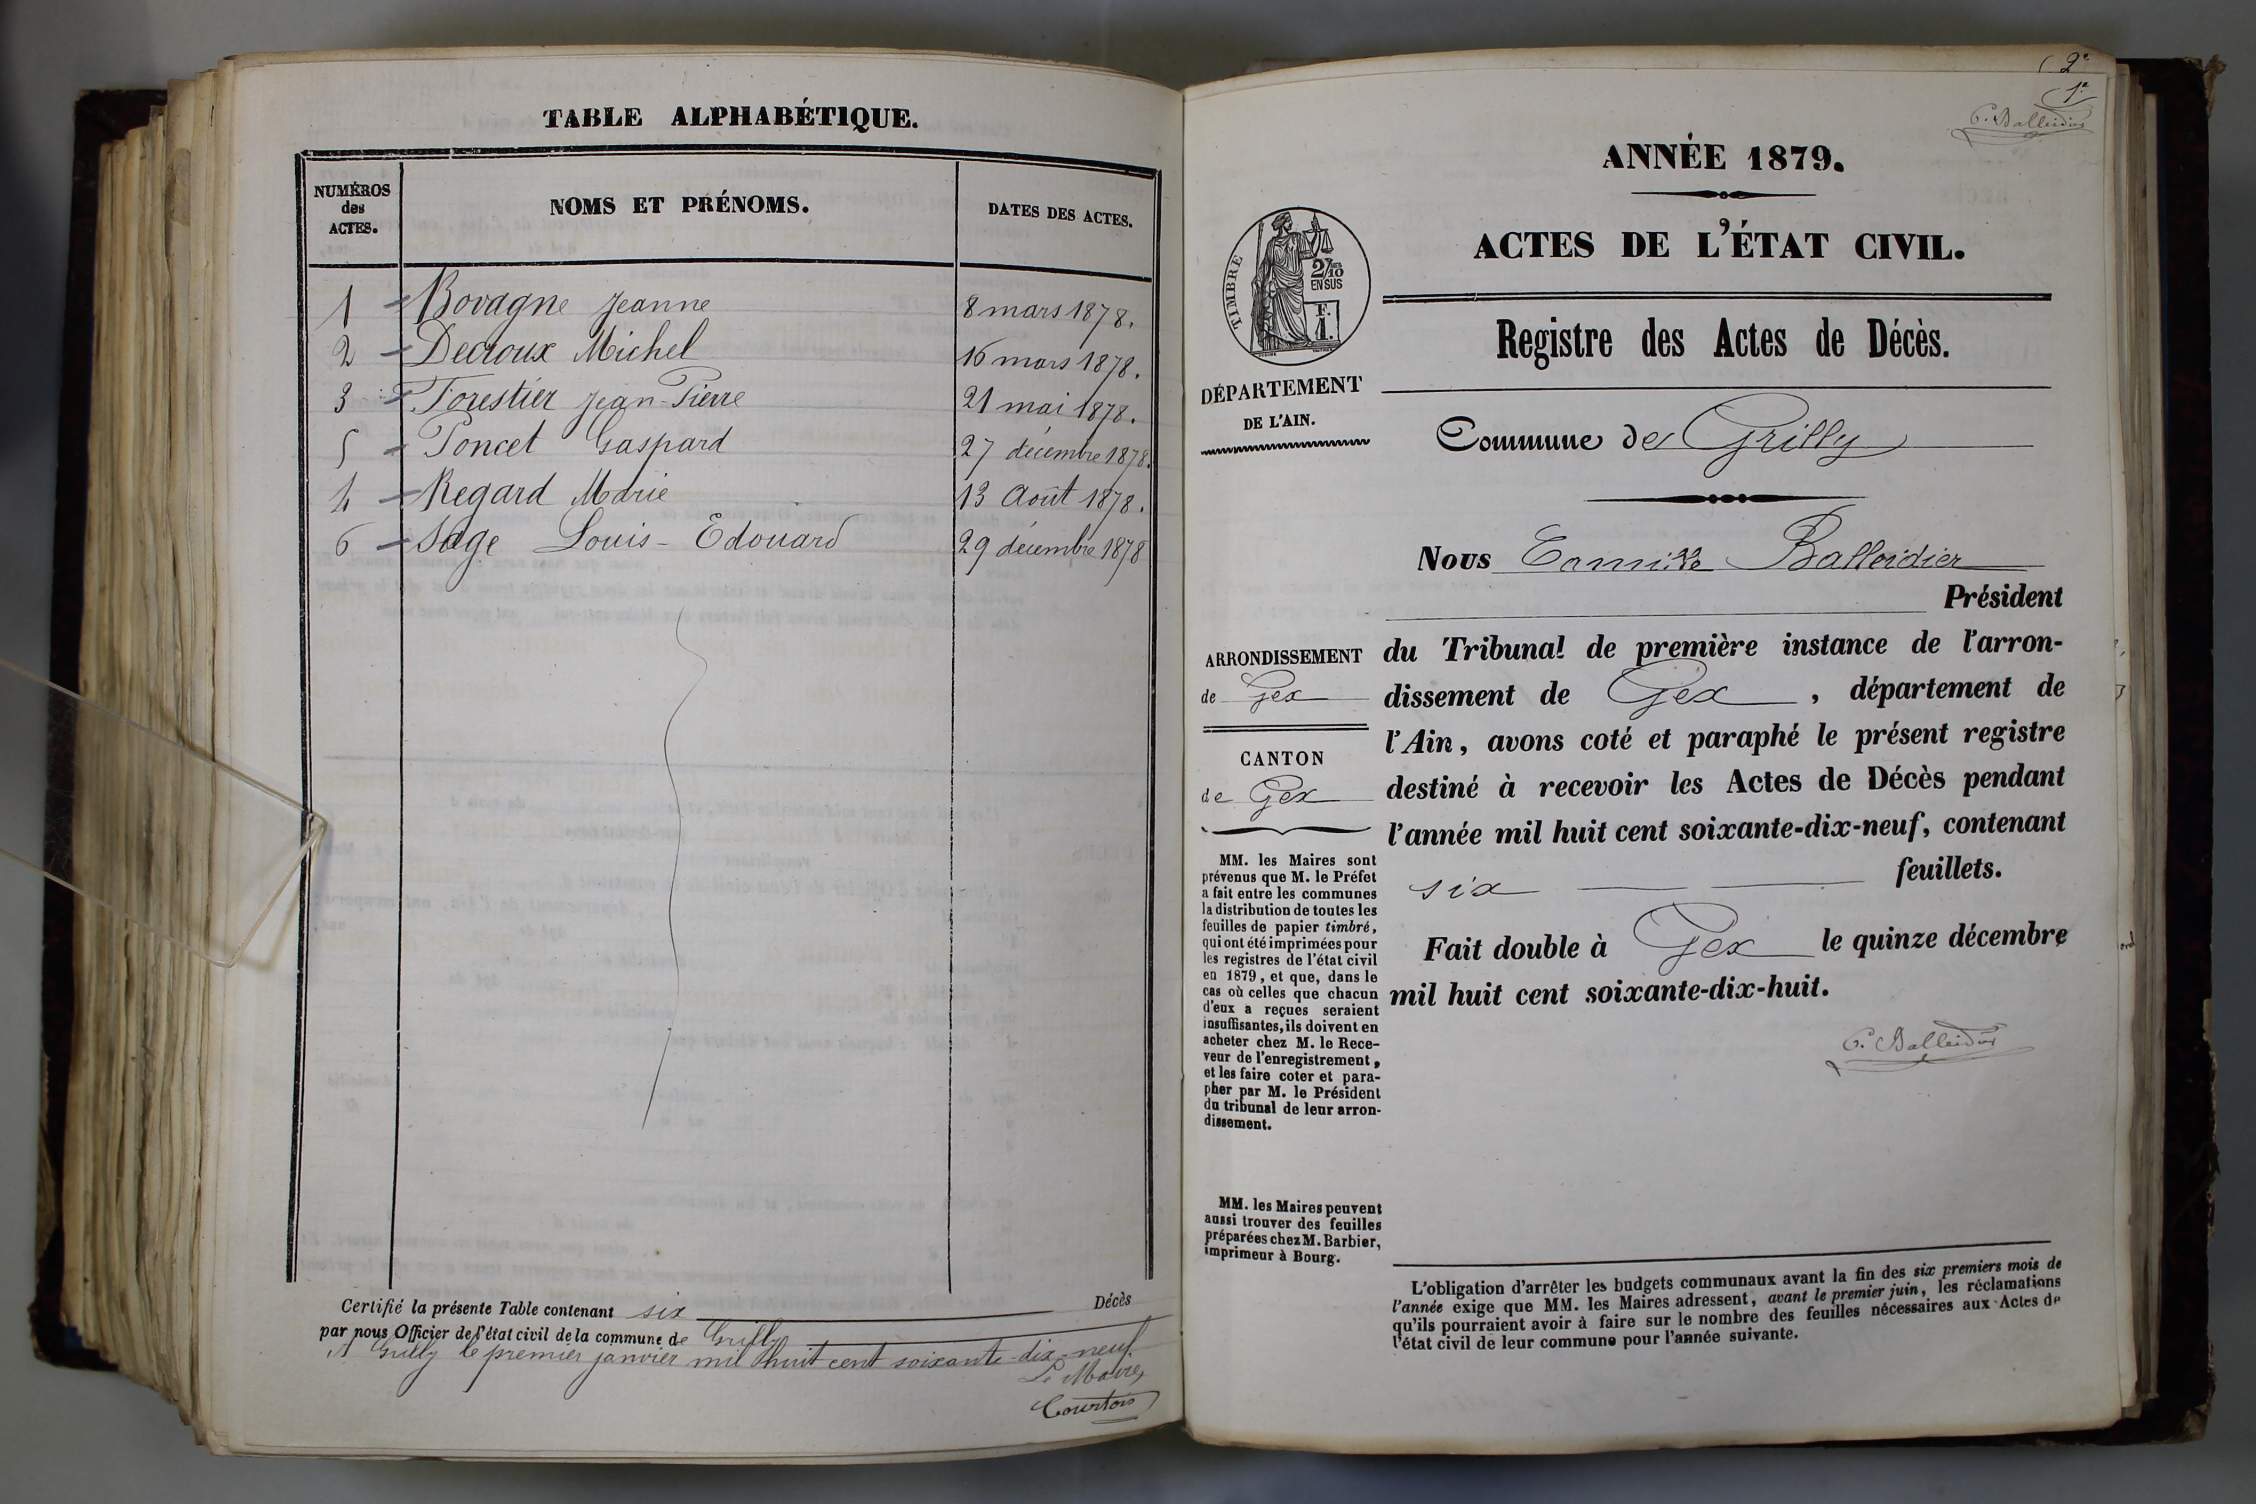 TABLE ALPHABÉTIQUE.
NUMÉROS des ACTES.
NOMS ET PRÉNOMS.
DATES DES ACTES.
1 Bovagne Jeanne 8 mars 1878.
2 Decroux Michel 16 mars 1878.
3 Forestier Jean-Pierre 21 mai 1878.
5 Poncet Gaspard 27 décembre 1878.
4 Regard Marie 13 Août 1878.
6 Sage Louis-Edouard 29 décembre 1878
Certifié la présente Table contenant six Décès
par nous Officier de l'état civil de la commune de Grilly
A Grilly le premier janvier mil huit cent soixante-dix-neuf.
Le Maire,
Courtois
2e
1er
C. Balleidier
ANNÉE 1879.
ACTES DE L'ÉTAT CIVIL.
TIMBRE
2/10
EN SUS
F.
1.
Registre des Actes de Décès.
DÉPARTEMENT
DE L'AIN.
Commune de Grilly
Nous Camille Balleidier
Président
du Tribunal de première instance de l'arron-
dissement de Gex, département de
l'Ain, avons coté et paraphé le présent registre
destiné à recevoir les Actes de Décès pendant
l'année mil huit cent soixante-dix-neuf, contenant
six feuillets.
Fait double à Gex le quinze décembre
mil huit cent soixante-dix-huit.
C. Balleidier
ARRONDISSEMENT
de Gex
CANTON
de Gex
MM. les Maires sont
prévenus que M. le Préfet
a fait entre les communes
la distribution de toutes les
feuilles de papier timbré,
qui ont été imprimées pour
les registres de l'état civil
en 1879, et que, dans le
cas où celles que chacun
d'eux a reçues seraient
insuffisantes, ils doivent en
acheter chez M. le Rece-
veur de l'enregistrement,
et les faire coter et para-
pher par M. le Président
du tribunal de leur arron-
dissement.
MM. les Maires peuvent
aussi trouver des feuilles
préparées chez M. Barbier,
imprimeur à Bourg.
L'obligation d'arrêter les budgets communaux avant la fin des six premiers mois de
l'année exige que MM. les Maires adressent, avant le premier juin, les réclamations
qu'ils pourraient avoir à faire sur le nombre des feuilles nécessaires aux Actes de
l'état civil de leur commune pour l'année suivante.